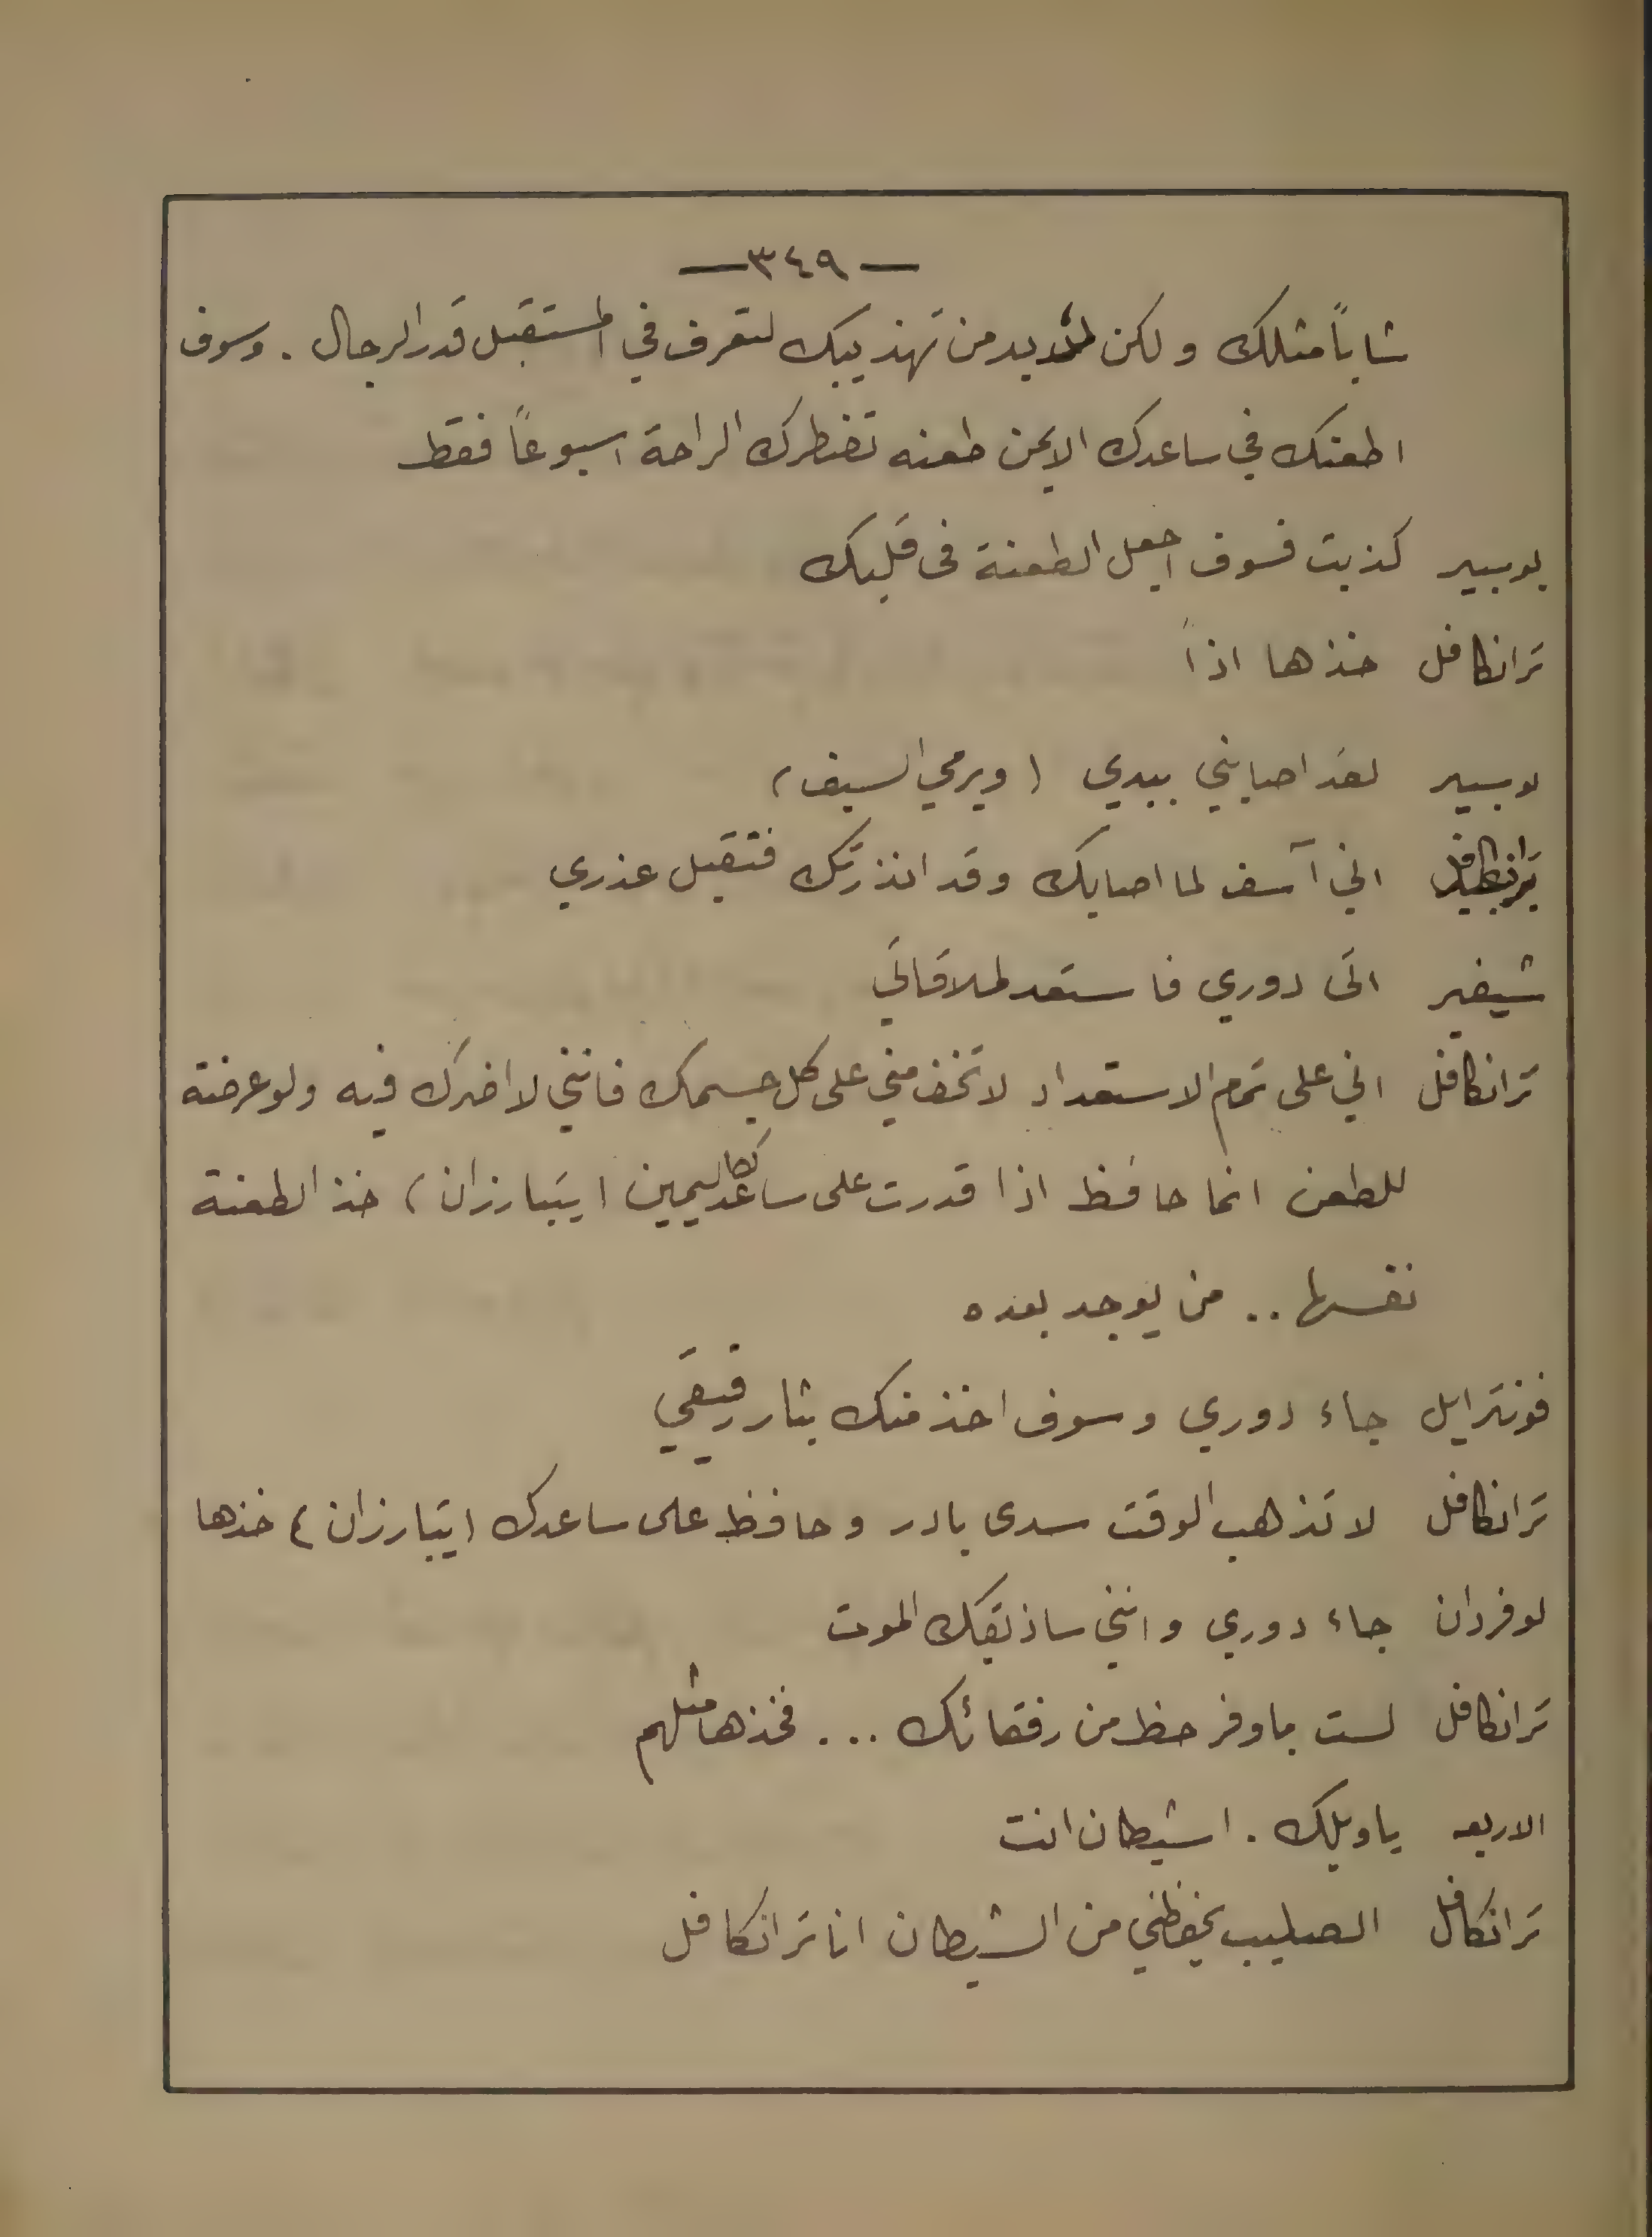 —٣٤٩—
شاباً مثلك ولكن لابد من تهذيبك لتعرف في المستقبل قدر الرجال . وسوف
اطعنك في ساعدك الايمن طعنه تضطرك الراحة اسبوعاً فقط
بوبيير كذبت فسوف اجعل الطعنة فى قلبك
ترانكافل خذها اذاً
لوبيير لقد اصابني بيدي (ويرمي السيف)
ترانكافل اني آسف لما اصابك وقد انذرتك فتقبل عذري
شيفير اتى دوري فاستعد لملاقاتي
ترانكافل اني على تمام الاستعداد لا تخف مني على كل جسمك فانني لا اضرك فيه ولو عرضته
للطعن انما حافظ اذا قدرت على ساعدك اليمين (يتبارزان) خذ الطعنة
نفسها .. من يوجد بعده
فونترايل جاء دوري وسوف اخذ منك بثار رفيقي
ترانكافل لا تذهب الوقت سدى بادر وحافظ على ساعدك (يتبارزان) خذها
لوفردان جاء دوري وانني ساذيقك الموت
ترانكافل لست باوفر حظ من رفقائك ... فخذها مثلهم
الاربعه ياويلك . اشيطان انت
ترانكافل الصليب يحفظني من الشيطان انا ترانكافل